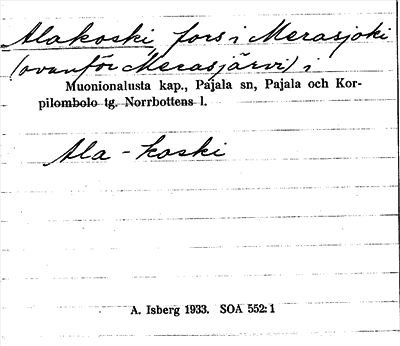 Alakoski, fors i Merasjoki
(ovanför Merasjärvi) i
Muonionalusta kap., Pajala sn, Pajala och Kor-
pilombolo tg. Norrbottens l.
Ala-koski
A. Isberg 1933. SOA 552:1